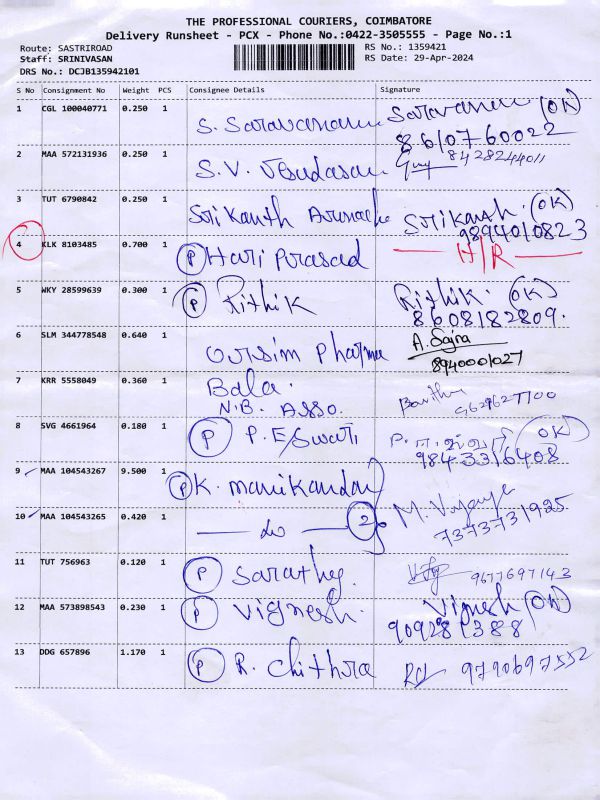 THE PROFESSIONAL COURIERS, COIMBATORE
Delivery Runsheet - PCX - Phone No.:0422-3505555 - Page No.:1
Route: SASTRIROAD RS No.: 1359421
Staff: SRINIVASAN RS Date: 29-Apr-2024
DRS No.: DCJB135942101
S No Consignment No Weight PCS Consignee Details Signature
1 CGL 100040771 0.250 1 S. Saravanan Saravanan (OK)
8610760022
2 MAA 572131936 0.250 1 S.V. Yesudasan 8428244011
3 TUT 6790842 0.250 1 Srikanth Srikanth. (OK)
9894010823
4 KLK 8103485 0.700 1 (P) Hari Prasad H/R
5 WKY 28599639 0.300 1 (P) Rithik Rithik. (OK)
8608182809.
6 SLM 344778548 0.640 1 Oursim Pharma A. Sajna
8940001027
7 KRR 5558049 0.360 1 Bala.
N.B. Asso. 9629627700
8 SVG 4661964 0.180 1 (P) P. Eswari P. ஈஸ்வரி (OK)
9843316408
9 MAA 104543267 9.500 1 (P) K. Manikandan
10 MAA 104543265 0.420 1 do 2 M. Vijaya
7373731925
11 TUT 756963 0.120 1 (P) Sarathy. 9677697143
12 MAA 573898543 0.230 1 (P) Vignesh. Vignesh (OK)
909281388
13 DDG 657896 1.170 1 (P) R. Chithra 9790697552